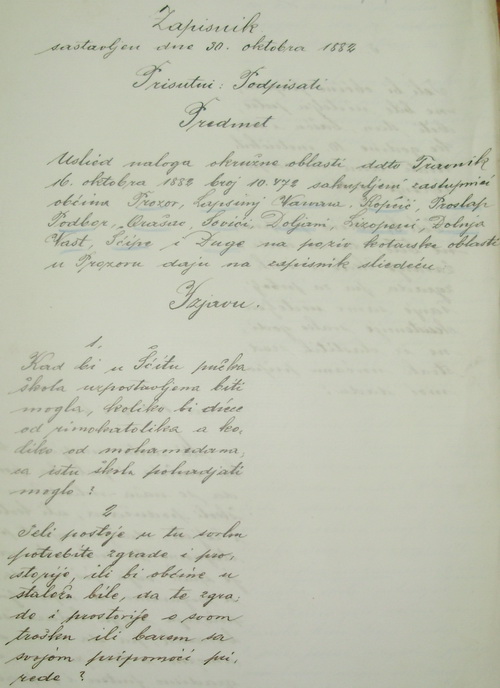 Zapisnik
sastavljen dne 30. oktobra 1882
Prisutni: Podpisati
Predmet
Uslied naloga okružne oblasti ddto Travnik
16. oktobra 1882 broj 10.472 sakupljeni zastupnici
občina Prozor, Varvara, Kopčić, Proslap
Podbor, Orašac, Sovići, Doljani, Lizoperci, Dolnja
Vast, Šćipe i Duge na poziv kotarske oblasti
u Prozoru daju na zapisnik sliedeću
Izjavu.
1.
Kad bi u Šćitu pučka
škola uzpostavljena biti
mogla, koliko bi diece
od rimokatolika a ko,
liko od mohamedana,
ca istu školu pohadjati
moglo?
2
Jeli postoje u tu svrhu
potrebite zgrade i pro,
storije, ili bi občine u
stališu bile, da te zgra,
de i prostorije o svom
trošku ili barem sa
svojom pripomoći pri,
rede?